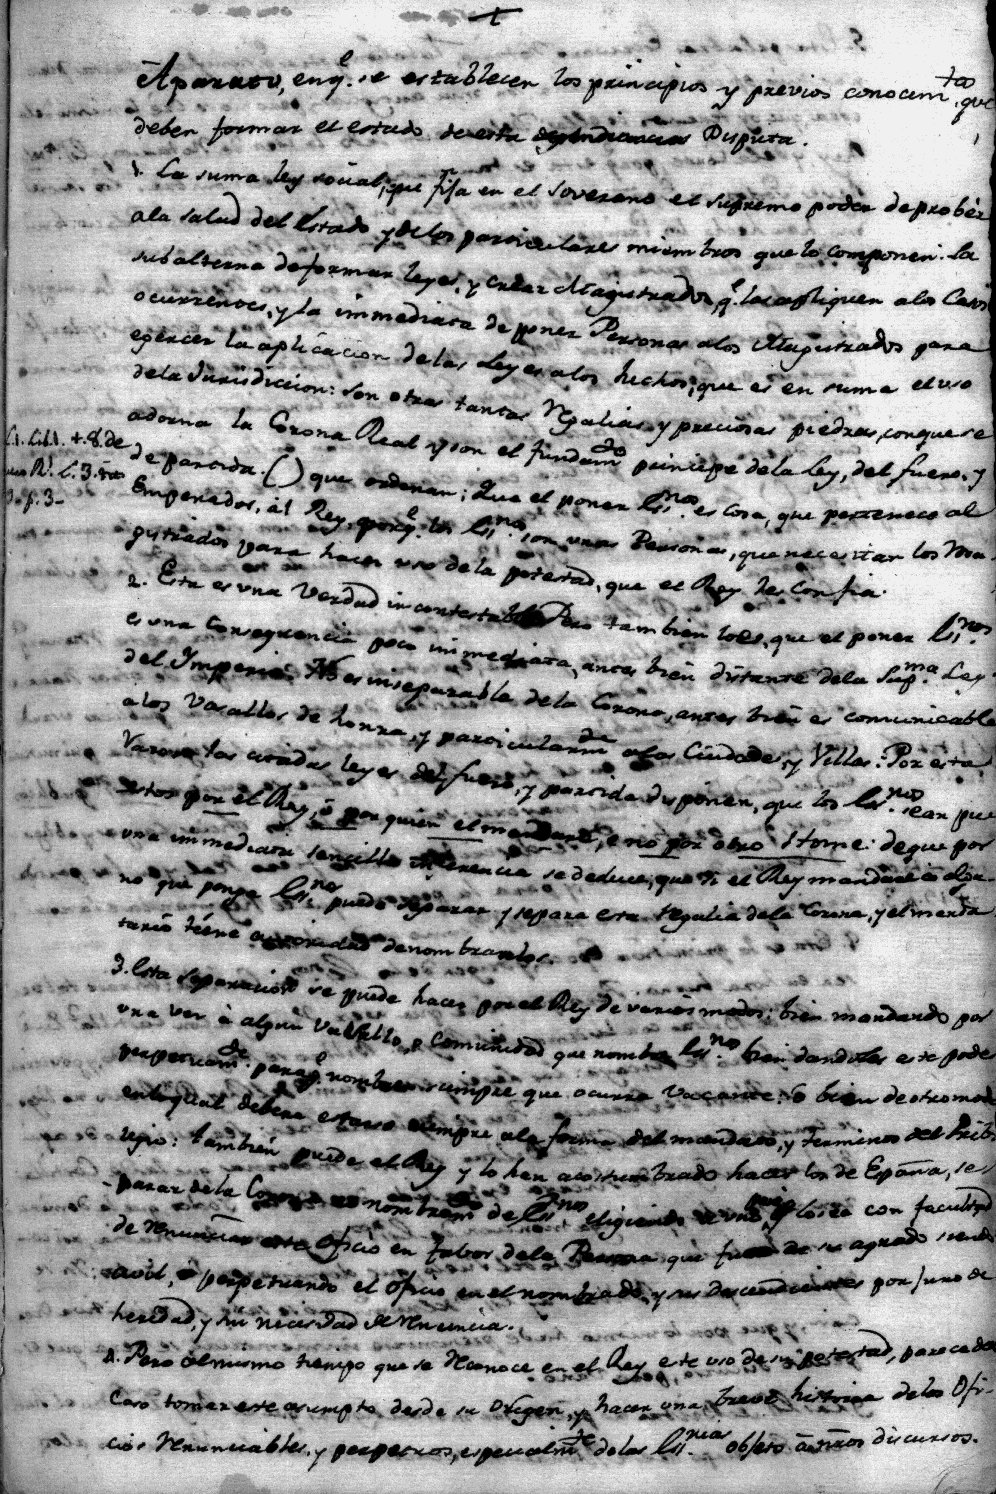 +
Aparato, enq.e se establecen los principios y previos conocim.tos que
deben formar el estado de esta Disputa.
1. La suma ley social, que fija en el soverano el supremo poder de probéer
ala salud del Estado y delos particulares miembros que lo componen: la
subalterna deformar leyes, y crear Magistrados q.e las apliquen alos Casos
ocurrentes, y la immediata de poner Personas alos Magistrados para
egercer la aplicacion delas Leyes alos hechos; que es en suma el uso
dela Jurisdiccion: son otras tantas Regalias, y preciosas piedras, conque se
adorna la Corona Real y son el fundam.to principe dela Ley, del fuero, y
L.1. lib.1. t.8. de
de partida. () que ordenan; Que el poner Ss.nos es cosa, que pertenece al
Emperador, ál Rey, porq.e los Ss.nos son unas Personas, que necesitan los Ma-
gistrados para hacer uso dela potestad, que el Rey les confia.
2. Esta es una Verdad incontestable. Pero tambien lo es, que el poner Ss.nos
es una consequencia poco inmediata, antes bien distante dela Sup.ma Ley
del Imperio. No es inseparable dela Corona, antes bien es comunicable
alos Vasallos de honra, y particularm.te alas Ciudades, y Villas. Por esta
Varon las citadas leyes del fuero, y partida disponen, que los Ss.nos sean pue
estos por el Rey, ó por quien el mandare, e no por otro Home: deque por
una immediata sencilla inferencia se deduce, que si el Rey mandare á algu-
no que ponga Ss.nos puede separar y separa esta regalia dela Corona, y el manda
tario tiene autoridad denombrarlos.
3. Esta separacion se puede hacer por el Rey de varios modos: bien mandando por
una vez à algun Vasallo, o Comunidad que nombre Ss.nos bien dandoles este poder
perpetuam.te paraq.e nombren siempre que ocurra Vacante: ó bien de otro modo
enlo qual debera estarse siempre ala forma del mandato, y terminos del Privi-
legio: tambien puede el Rey y lo han acostumbrado hacer los de España, se-
parar dela Corona el nombram.to de Ss.nos eligiendo se uno q.e lo sea con facultad
de renunciar este Oficio en fabor dela Persona que fuere de su agrado siendo
avil, o perpetuando el oficio en el nombrado, y sus descendientes por juro de
heredad, y sin necesidad de Renuncia.
4. Pero almismo tiempo que se Reconoce en el Rey este uso desu potestad, parece del
Caso tomar este asumpto desde su Origen, y hacer una breve historia delos Ofi-
cios Renunciables, y perpetuos, especialm.te delas Ss.nias objeto á ñros discursos.